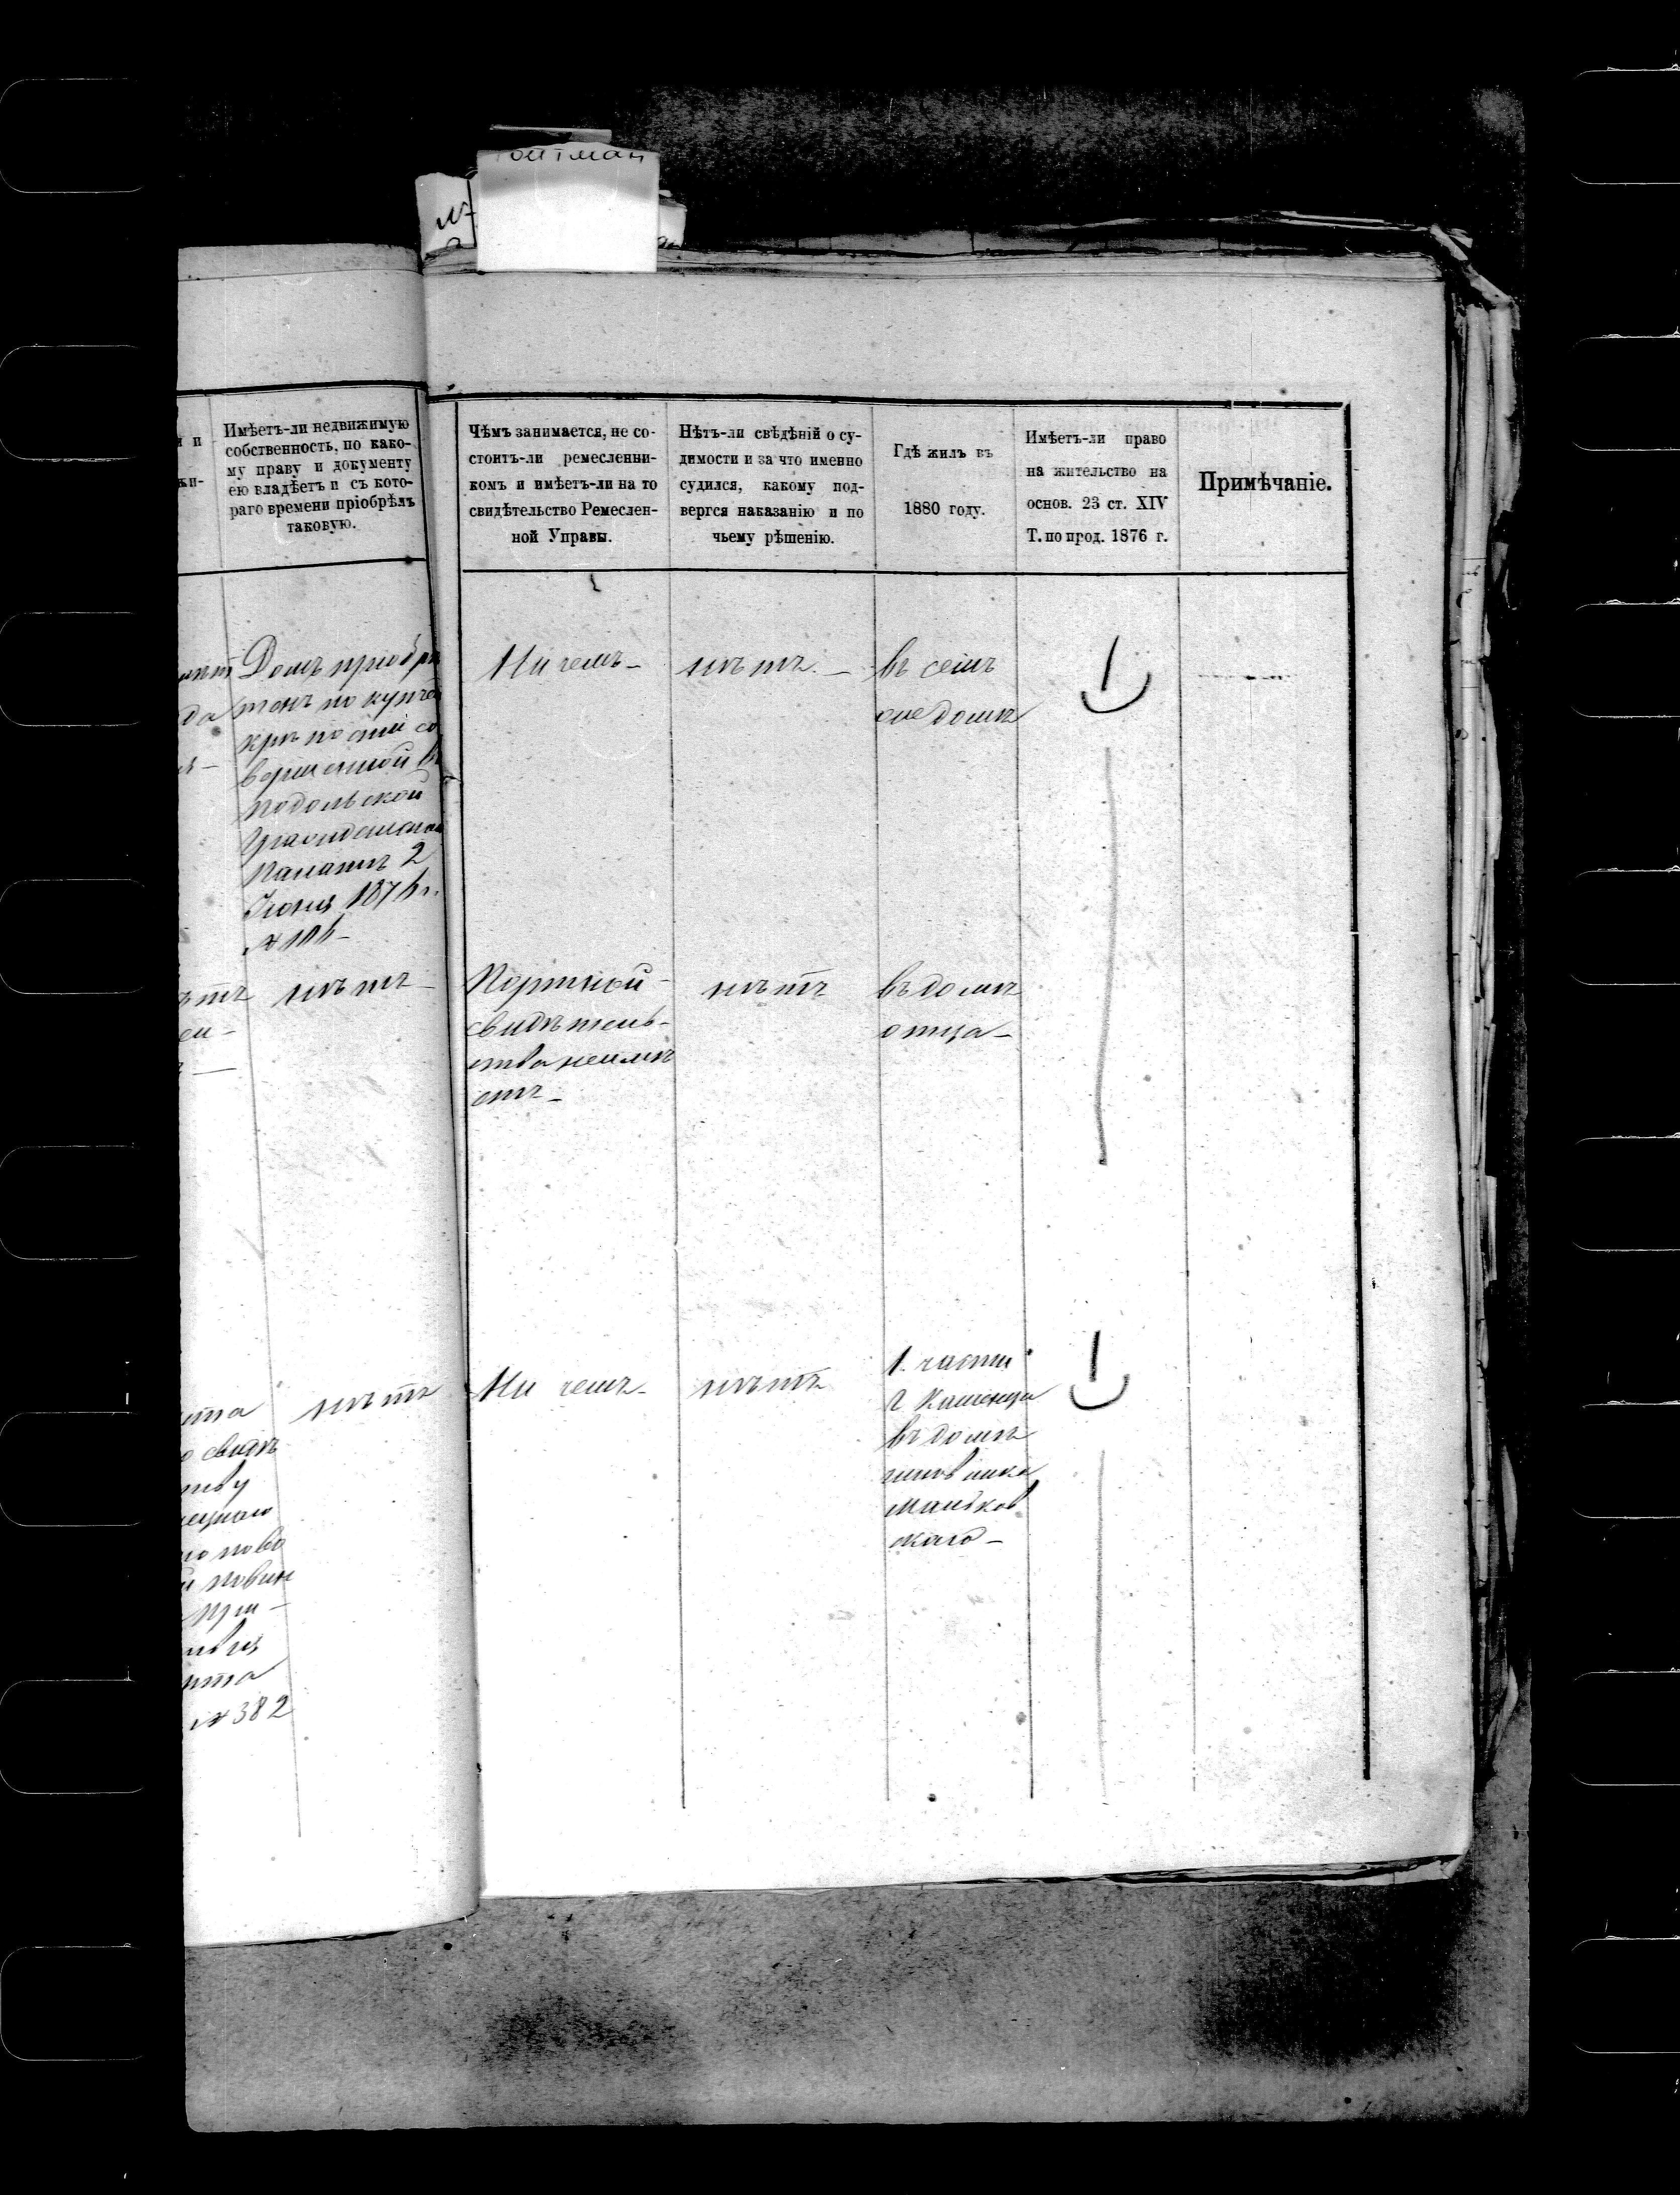 Гойтман
и п
жи-
Имѣетъ-ли недвижимую
собственность, по како-
му праву и документу
ею владѣетъ и съ кото-
раго времени пріобрѣлъ
таковую.
Чѣмъ занимается, не со-
стоитъ-ли ремесленни-
комъ и имѣетъ-ли на то
свидѣтельство Ремеслен-
ной Управы.
Нѣтъ-ли свѣдѣній о су-
димости и за что именно
судился, какому под-
вергся наказанію и по
чьему рѣшенію.
Гдѣ жилъ въ
1880 году.
Имѣетъ-ли право
на жительство на
основ. 23 ст. XIV
Т. по прод. 1876 г.
Примѣчаніе.
Домъ пріобрѣ
тенъ по купчей
крѣпости со
вершенной въ
Подольской
Гражданской
Палатѣ 2
Іюня 187 г.
№
Ни чемъ-
нѣтъ.-
въ семъ
же домѣ
нѣтъ-
Портной-
свидѣтель-
ства неимѣ
етъ-
нѣтъ
въ домѣ
отца-
нѣтъ
Ни чемъ-
нѣтъ
1. части
г Каменца
въ домѣ
чиновника
Маньков
скаго-
о свидѣ
тву
повин
При-
№ 382